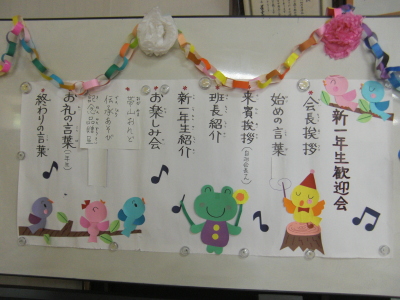 新一年生歓迎会
会長挨拶
始めの言葉
来賓挨拶
班長紹介
新一年生紹介
お楽しみ会
伝承あそび
記念品贈呈
お礼の言葉
終わりの言葉